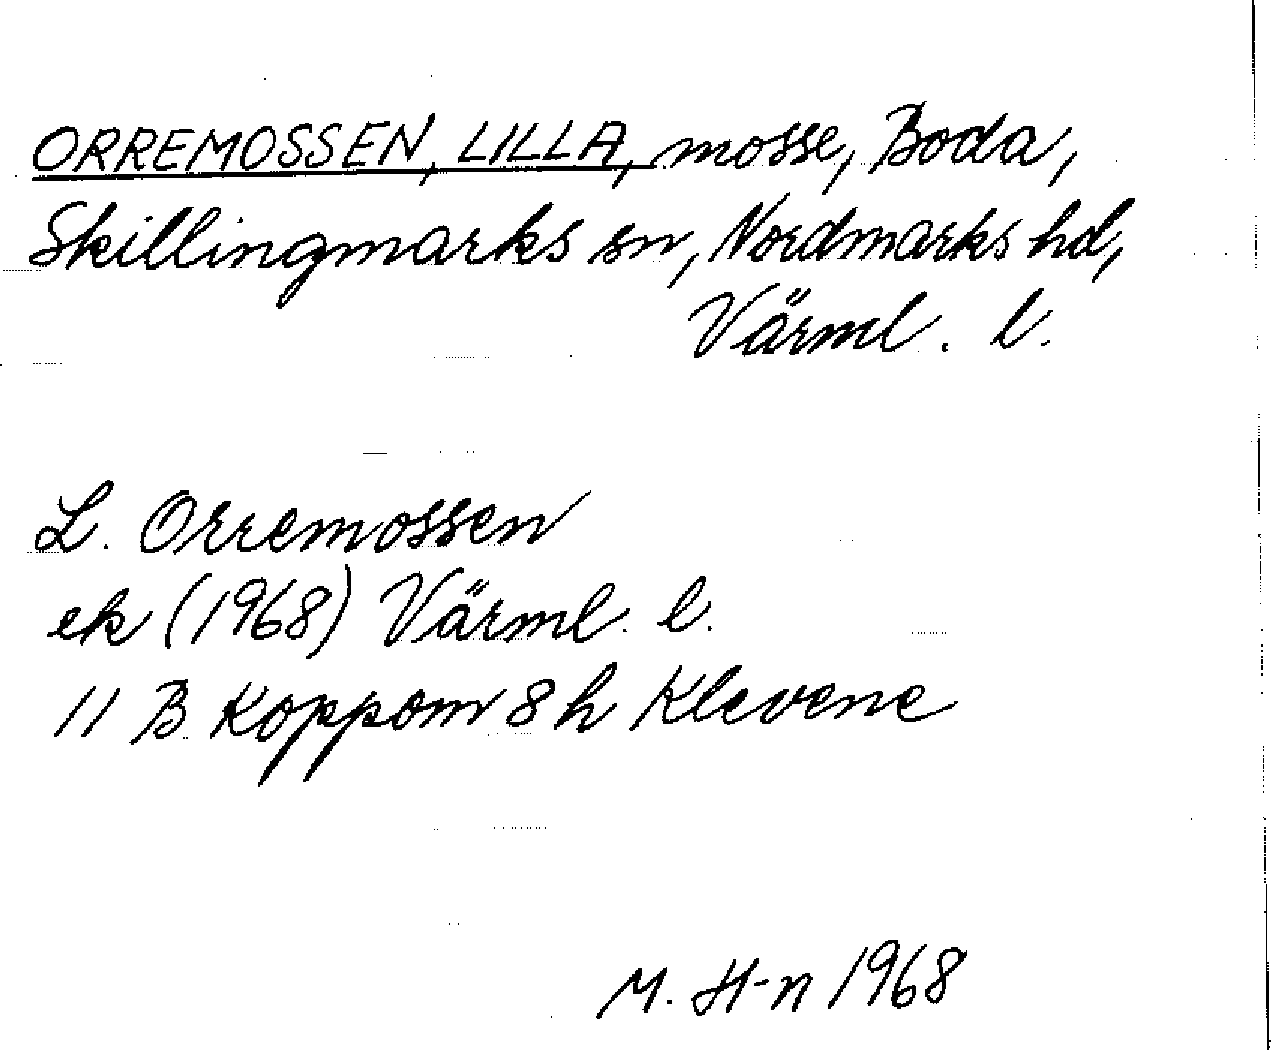 ORREMOSSEN, LILLA, mosse, Boda,
Skillingmarks sn, Nordmarks hd,
Värml. l.
L. Orremossen
ek (1968) Värml. l.
11 B Koppom 8 h Klevene
M. H-n 1968